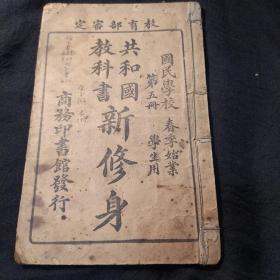 教育部審定
國民學校 春季始業
第五冊 學生用
共和國
教科書
新修身
商務印書館發行